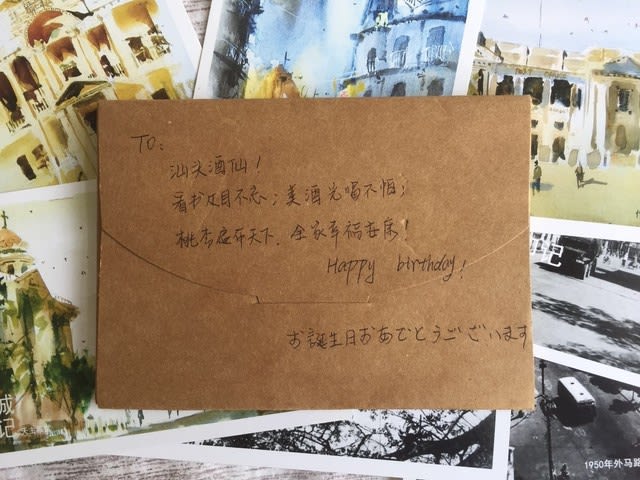 TO:
汕头酒仙!
看书过目不忘;美酒光喝不怕;
桃李遍开天下,全家幸福安康!
Happy birthday!
お誕生日おめでとうございます
记
成
记
1950年外马路